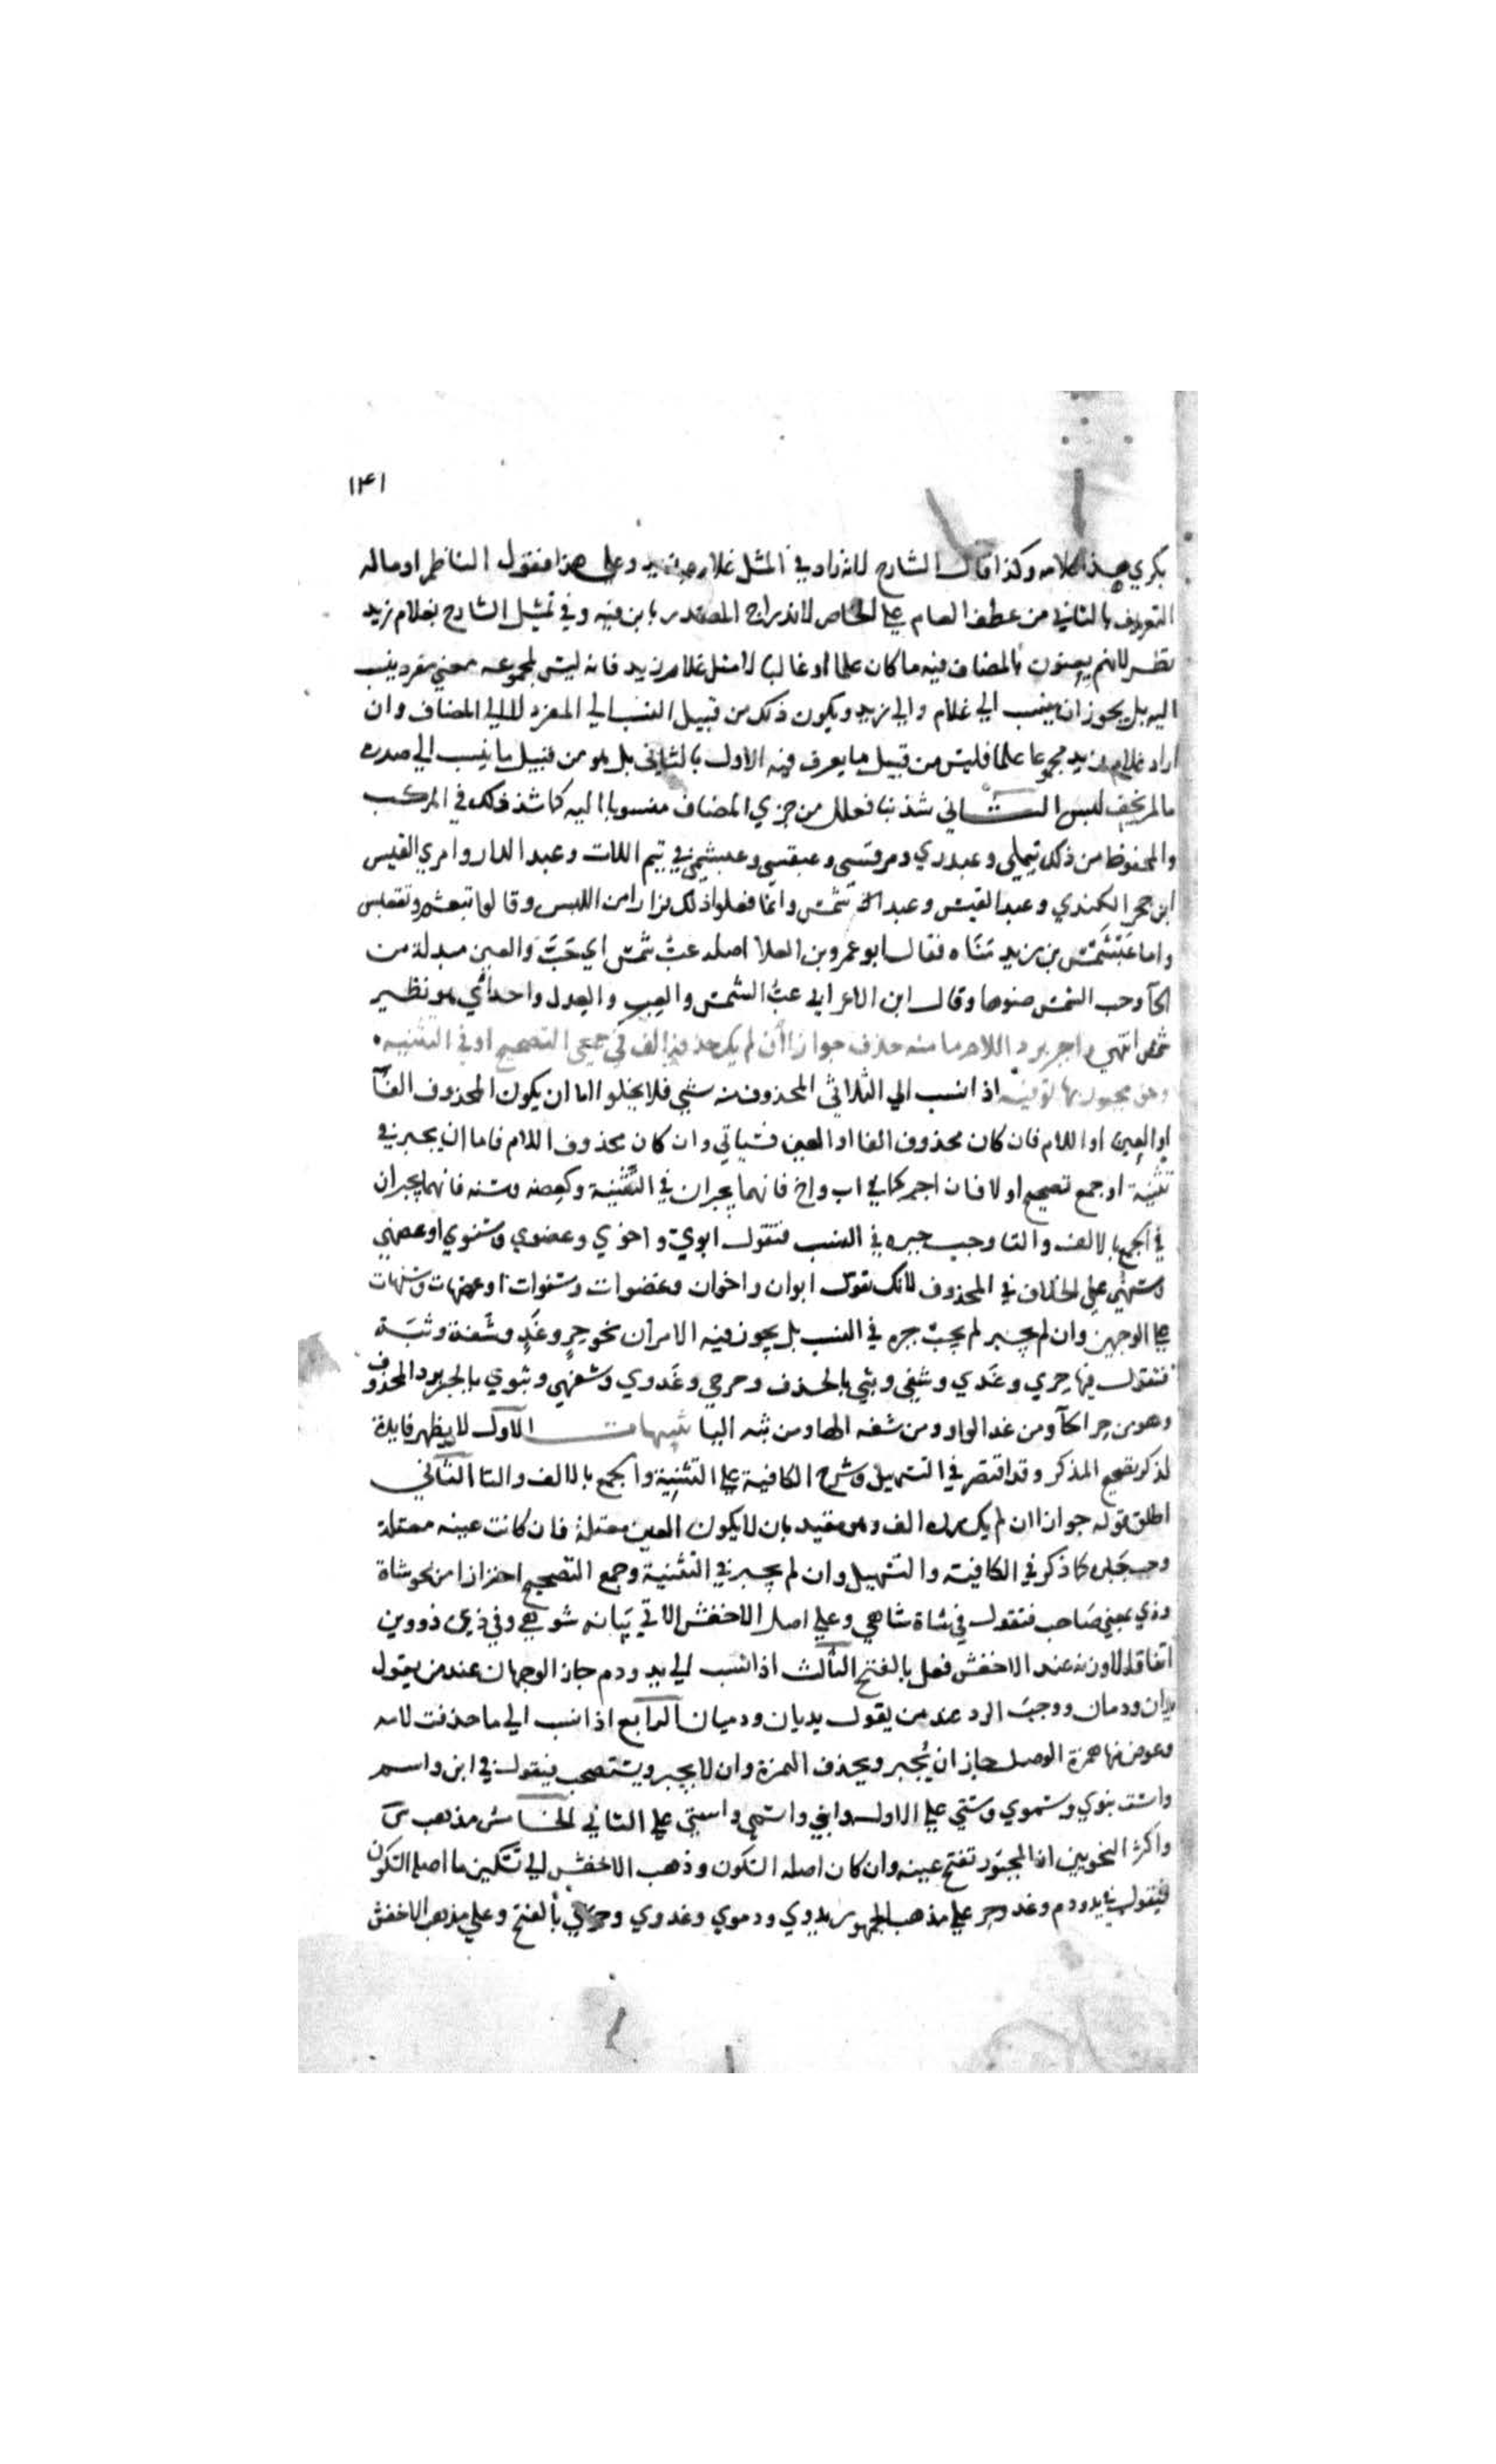 ١٣١
بكري هذا كلامه وكذا قال الشارح لانه زاد في المثل غلام زيد وعلي هذا فقول الناظم او ماله
التعريف بالثاني من عطف العام علي الخاص لاندراج المصدر بابن فيه وفي تمثيل الشارح بغلام زيد
نظر لانهم يعنون بالمضاف فيه ما كان علما او غالبا لا مثل غلام زيد فانه ليس لمجموعه معني مفرد ينسب
اليه بل يجوز ان ينسب الي غلام والي زيد ويكون ذلك من قبيل النسب الي المفرد لا الي المضاف وان
اراد غلام زيد مجموعا علما فليس من قبيل ما يعرف فيه الاول بالثاني بل هو من قبيل ما ينسب الي صدره
مالم يخف لبس الثاني شذ بنا فعلل من جزي المضاف منسوبا اليه كما شذ ذلك في المركب
والمحفوظ من ذلك تيملي وعبدري ومرقسي وعبقسي وعبشمي في تيم اللات وعبد الدار وامري القيس
ابن حجر الكندي وعبد القيس وعبد شمس وانما فعلوا ذلك فرارا من اللبس وقالوا تبعشم وتعقبس
واما عبشمس بن زيد مناه فقال ابو عمرو بن العلا اصله عب شمس اي حب والعين مبدلة من
الحآ وحب الشمس ضوها وقال ابن الاعرابي عب الشمس والعب والعدل واحد اي هو نظير
شمس انتهي واجبر برد اللام ما منه حذف جوازا ان لم يك رده الف في جمعي التصحيح او في التثنيه
وحق مجبور بهذي توفيه اذا نسب الي الثلاثي المحذوف منه شي فلا يخلو اما ان يكون المحذوف الفآ
او العين او اللام فان كان محذوف الفا او العين فسياتي وان كان محذوف اللام فاما ان يجبر في
تثنية او جمع تصحيح او لا فان اجبر كما في اب واخ فانهما يجبران في التثنية وكعضه وسنه فانهما يجبران
في الجمع بالالف والتا وجب جبره في النسب فتقول ابوي واخوي وعضوي وسنوي او عضهي
وسنهي علي الخلاف في المحذوف لانك تقول ابوان واخوان وعضوات وسنوات او عضهات وسنهات
علي الوجهين وان لم يجبر لم يجب جبره في النسب بل يجوز فيه الامران نحو حر وغد وشفة وثبة
فتقول فيها حري وغدي وشفي وثبي بالحذف وحرحي وغدوي وشفهي وثبوي بالجبر برد المحذوف
وهو من حر الحآ ومن غد الواو ومن شفه الها ومن ثبه اليا تنبيهات الاول لا يظهر فايدة
لذكر تصحيح المذكر وقد اقتصر في التسهيل وشرح الكافية علي التثنية والجمع بالالف والتا الثاني
اطلق قوله جوازا ان لم يك رده الف وهو مقيد بان لا يكون العين معتلة فان كانت عينه معتلة
وجب جبره كما ذكر في الكافية والتسهيل وان لم يجبر في التثنية وجمع التصحيح احترازا من نحو شاة
وذي بمعني صاحب فتقول في شاة شاهي وعلي اصل الاخفش الاتي بيانه شوهي وفي ذي ذووي
اتفاقا لان وزنه عند الاخفش فعل بالفتح الثالث اذا نسب الي يد ودم جاز الوجهان عند من يقول
يدان ودمان ووجب الرد عند من يقول يديان ودميان الرابع اذا نسب الي ما حذفت لامه
وعوض منها همزة الوصل جاز ان يجبر ويحذف الهمزة وان لا يجبر ويستصحب فيقول في ابن واسم
واست بنوي وسموي وستهي علي الاول وابني واسمي واستي علي الثاني الخامس مذهب س
واكثر النحويين ان المجبور تفتح عينه وان كان اصله السكون وذهب الاخفش الي تسكين ما اصله السكون
فيقول في يد ودم وغد وحر علي مذهب الجمهور يدوي ودموي وغدوي وحرحي بالفتح وعلي مذهب الاخفش